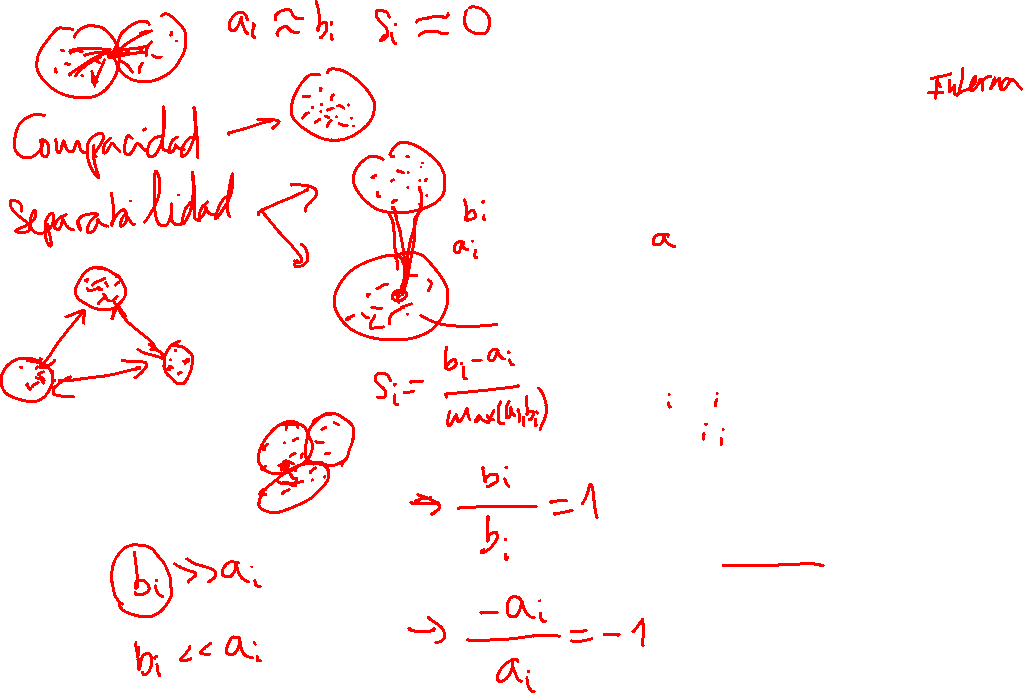 a_i ≈ b_i   s_i ≈ 0
Interna
Compacidad →
Separabilidad
b_i
a_i
a
s_i = (b_i - a_i) / max(a_i, b_i)
i i
i i
→ b_i / b_i = 1
b_i >> a_i
→ -a_i / a_i = -1
b_i << a_i